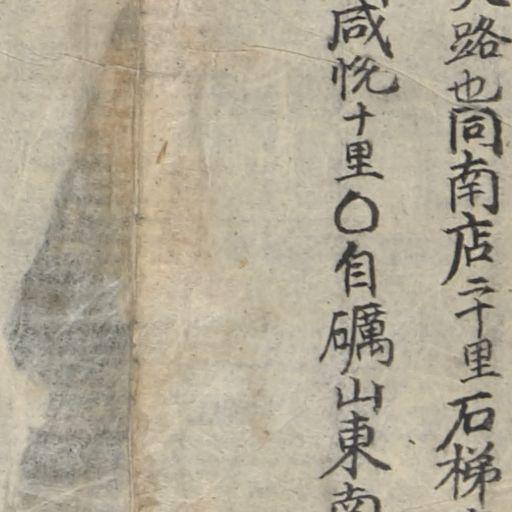 路也同南店二十里石梯
咸悅十里〇自礪山東南